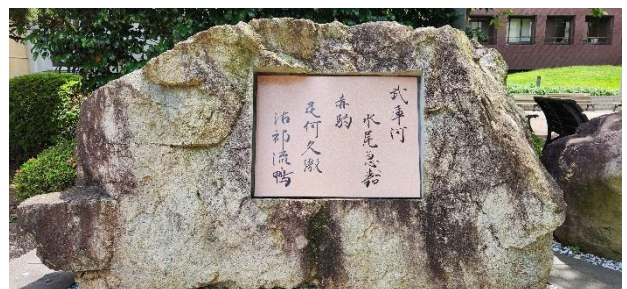 武庫河
水尾急嘉
赤駒
足何久激
沾祁流鴨